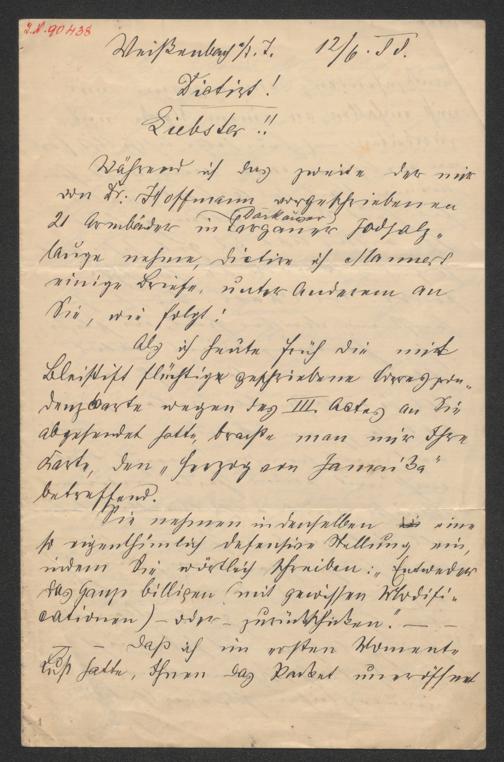 I.N. 90438
Weißenbach a/d. T. 12/6. 88.
Dictirt!
Liebster!!
Während ich das zweite der mir
von Dr: Hoffmann vorgeschriebenen
Darkauer
21 Armbäder in Jodsalz-
lauge nehme, dictire ich
einige Briefe, unter Anderem an
Sie, wie folgt:
Als ich heute früh die mit
Bleistift flüchtig geschriebene Correspon-
denzkarte wegen des III. Actes an Sie
abgesendet hatte, brachte man mir Ihre
Karte, den „Herzog von
betreffend.
Sie nehmen in denselben eine
so eigenthümlich defensive Stellung ein,
indem Sie wörtlich schreiben: „Entweder
das Ganze billigen (mit gewissen Modifi-
cationen) – oder – zurückschicken." – –
– – Daß ich im ersten Momente
Lust hatte, Ihnen das Packet uneröffnet